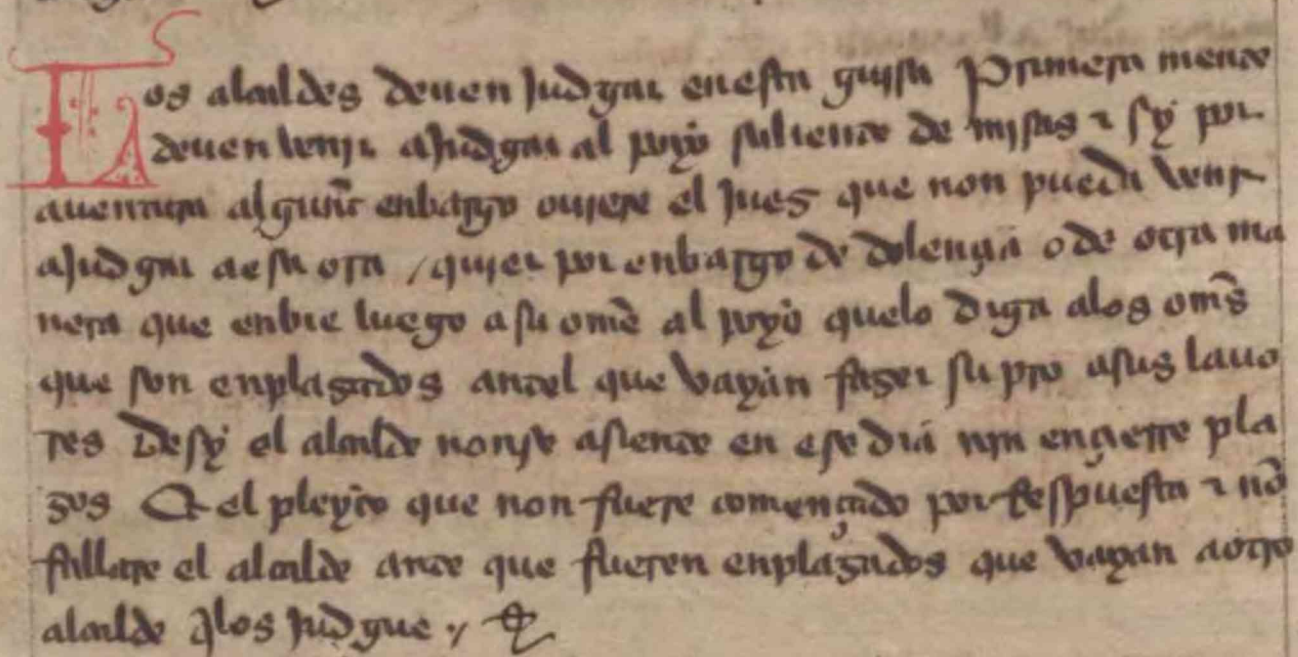 Los alcaldes deuen judgar enesta guisa Primera mente
deuen venir ajudgar al poyo saliente de misas ⁊ sy por
auentura algunt enbargo ouiere el jues que non pueda venir
ajudgar aesa ora / quier por enbargo de dolençia o de otra ma
nera que enbie luego asu ome al poyo quelo diga alos om̃s
que son enplazados antel que vayan fazer su pro asus lauo
res Desy el alcalde nonse asiente en ese dia nin ençierre pla
zos Et el pleyto que non fuere començado por respuesta ⁊ nõ
fallare el alcalde ante que fueren enplazados que vayan aotro
alcalde q̃los judgue